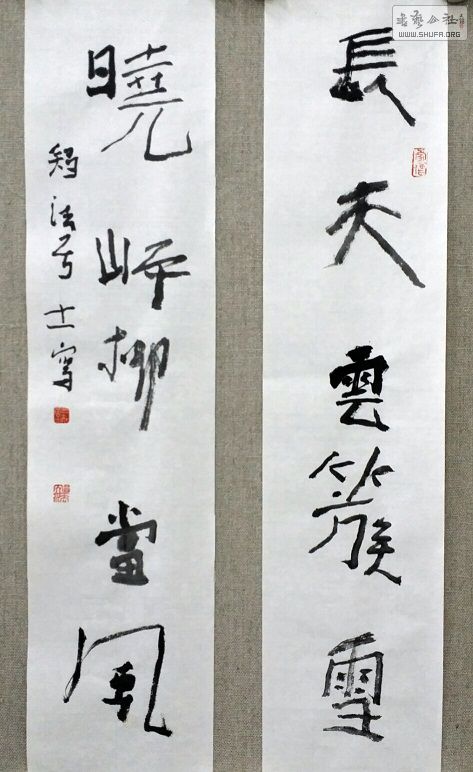 書藝公社
WWW.SHUFA.ORG
長天雲簇雪
曉岸柳當風
法 士寫